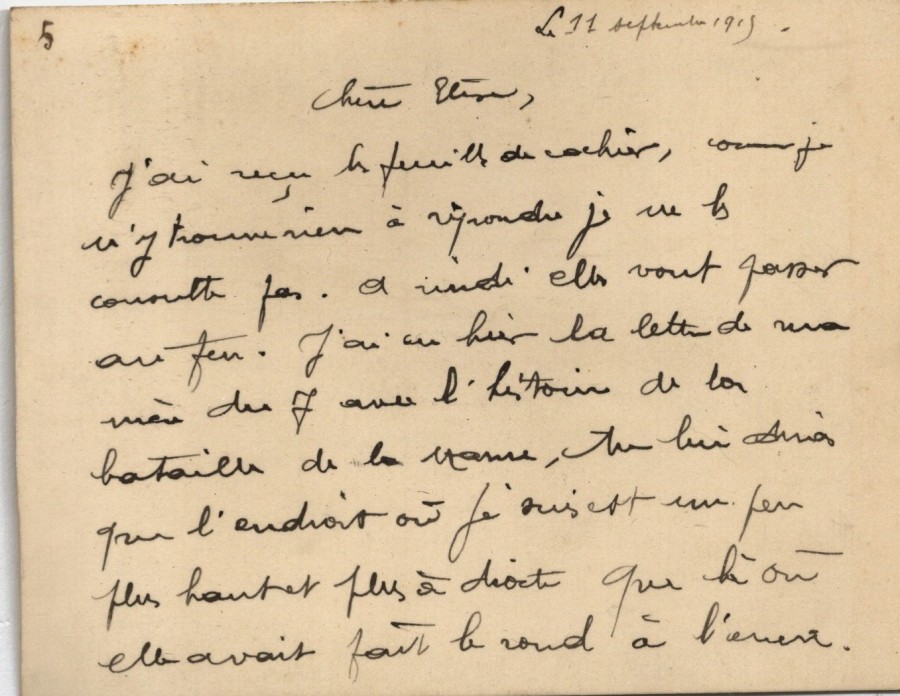 5
Le 11 septembre 1915.
Chère Elise,
J'ai reçu les feuilles de cahier, comme je
n'y trouve rien à répondre je ne les
consulte pas. A midi elles vont passer
au feu. J'ai eu hier la lettre de ma
mère du 7 avec l'histoire de la
bataille de la Marne, tu lui diras
que l'endroit où je suis est un peu
plus haut et plus à droite que là où
elle avait fait le rond à l'encre.